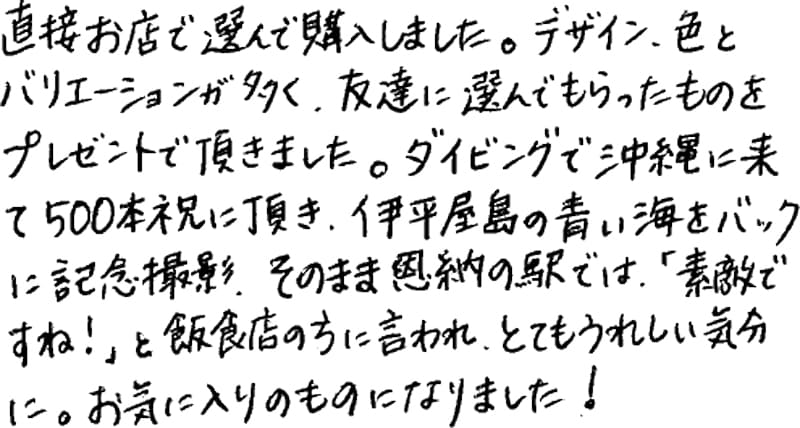 直接お店で選んで購入しました。デザイン、色と
バリエーションが多く、友達に選んでもらったものを
プレゼントで頂きました。ダイビングで沖縄に来
て500本祝に頂き、伊平屋島の青い海をバック
に記念撮影、そのまま恩納の駅では、「素敵で
すね!」と飯食店の方に言われ、とてもうれしい気分
に。お気に入りのものになりました!